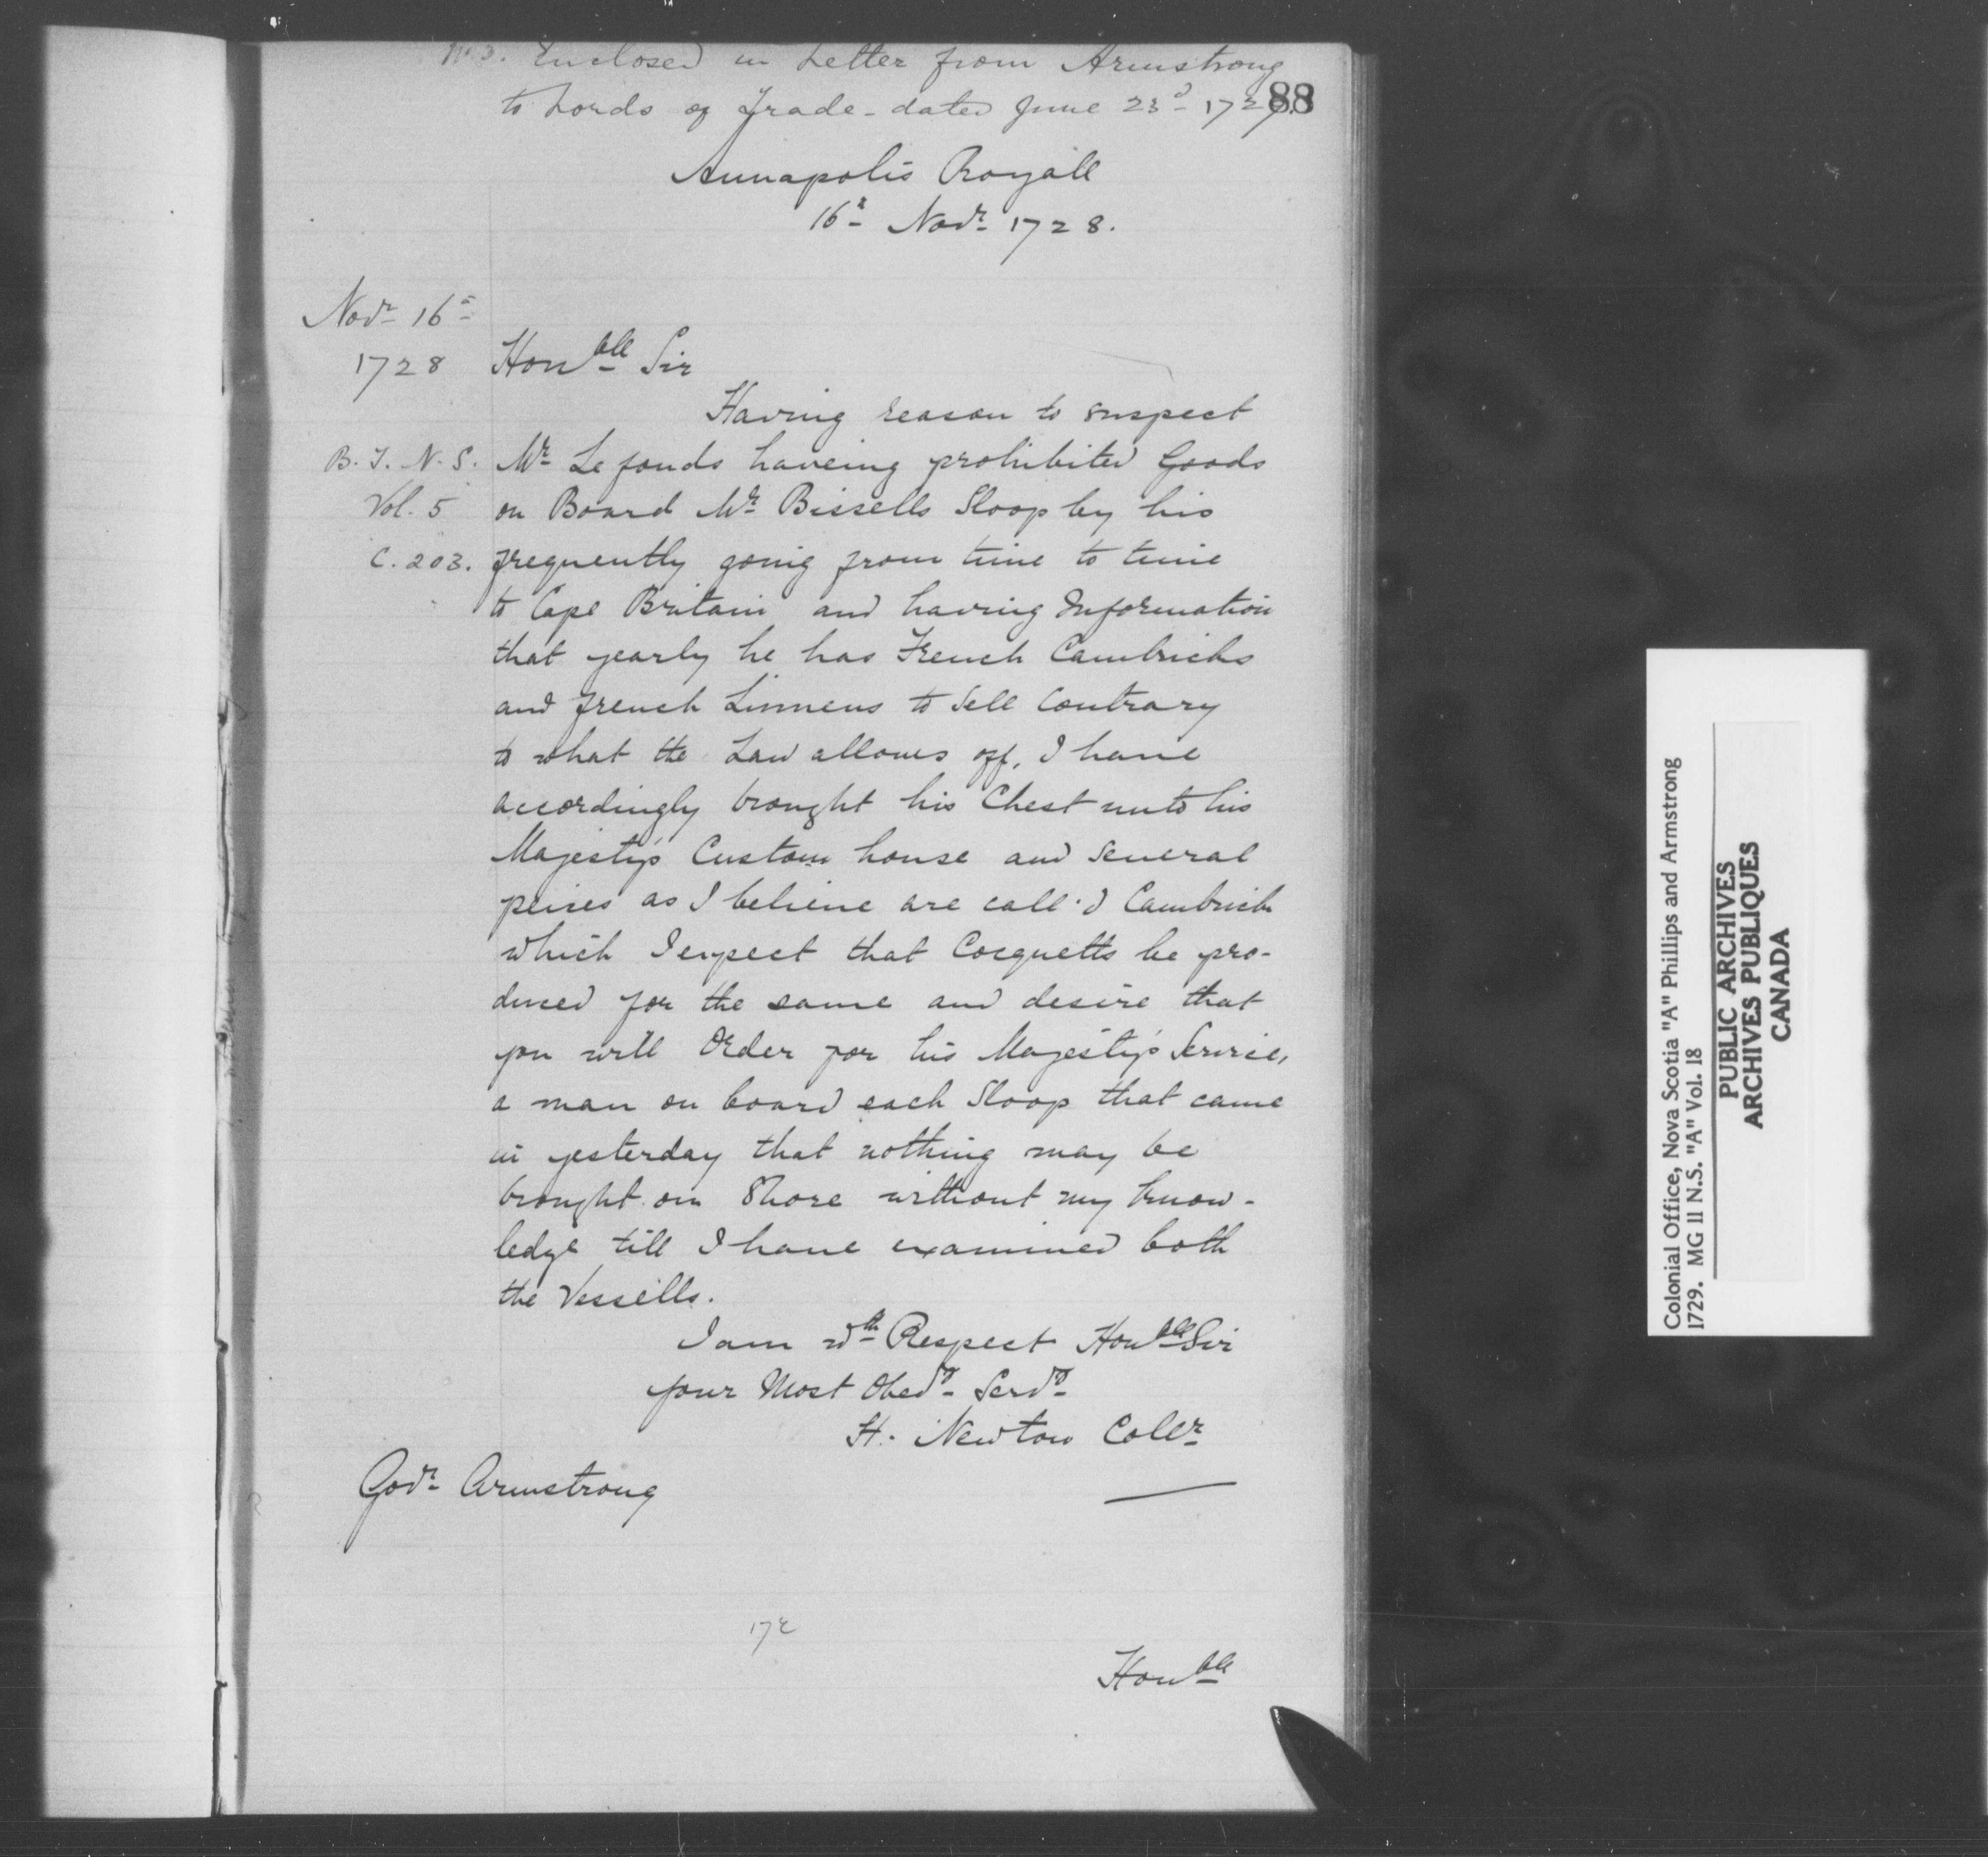 No. 3. Enclosed in Letter from Armstrong
to Lords of Trade - dated June 23d 1729.
88
Annapolis Royall
16r Novr 1728.
Novr 16r
1728
Honble Sir
Having reason to suspect
B. T. N. S.
Vol. 5
C. 203.
Mr Lefonds haveing prohibited Goods
on Board Mr Bissells Sloop by his
frequently going from time to time
to Cape Britain and having Information
that yearly he has French Cambricks
and french Linnens to Sell Contrary
to what the Law allows off, I have
accordingly brought his Chest unto his
Majesty's Custom house and several
peices as I believe are call'd Cambrick
which I expect that Cocquetts be pro-
duced for the same and desire that
you will Order for his Majesty's Service,
a man on board each Sloop that came
in yesterday that nothing may be
brought on Shore without my know-
ledge till I have examined both
the Vessells.
I am wth Respect Honble Sir
your Most Obedt Servt
H. Newton Collr
Govr Armstrong
172
Honble
Colonial Office, Nova Scotia "A" Phillips and Armstrong
1729. MG 11 N.S. "A" Vol. 18
PUBLIC ARCHIVES
ARCHIVES PUBLIQUES
CANADA